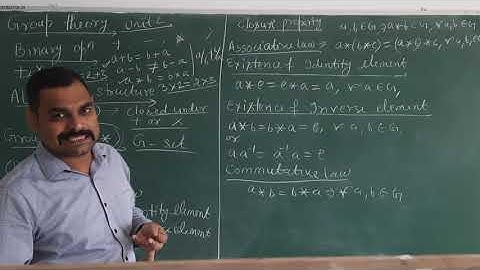 Group theory, unit 2
Binary opn
a+b = b+a
a-b ≠ b-a
a*b = b*a
2+3
3×2=2×3
Structure
closed under
G - set
Identity element
element
closure property
a,b∈G, a*b∈G, ∀ a,b∈G
Associative law → a*(b*c) = (a*b)*c, ∀
Existence of Identity element
a*e = e*a = a, ∀ a∈G
Existence of Inverse element
a*b = b*a = e, ∀ a,b∈G
or
aa⁻¹ = a⁻¹a = e
Commutative law
a*b = b*a, ∀ a,b∈G